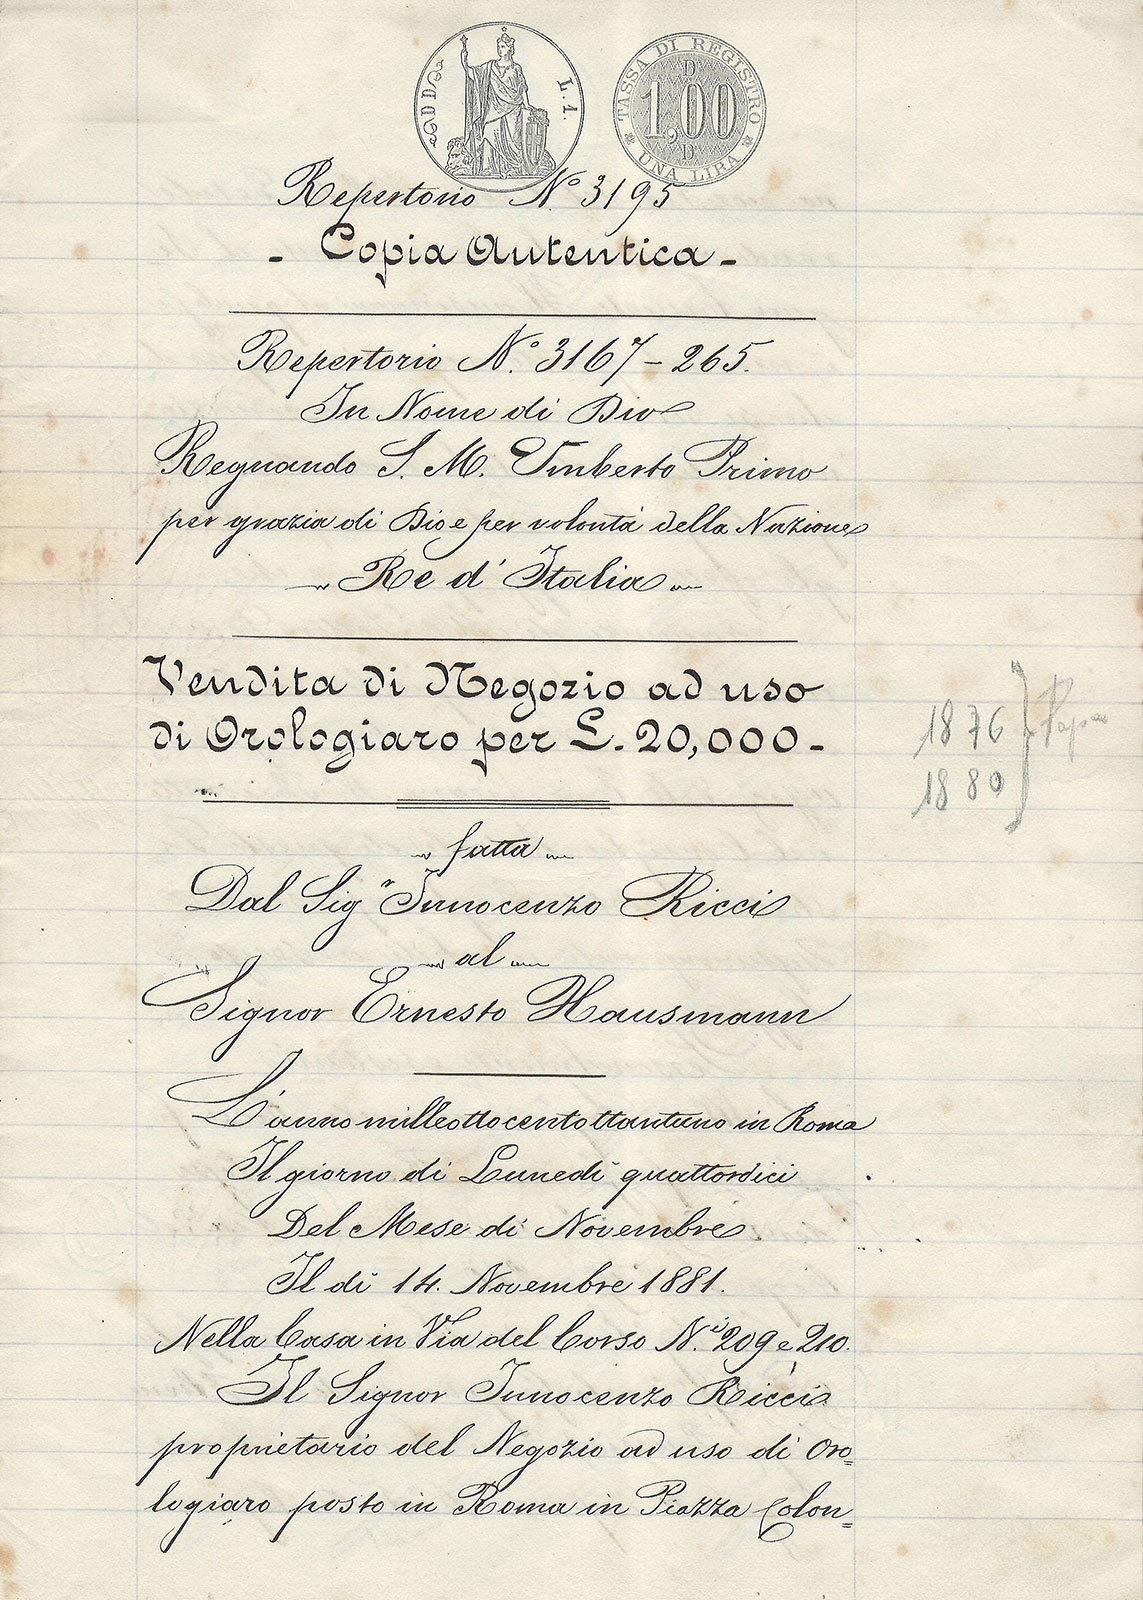 L. 1.
TASSA DI REGISTRO
D
1,00
D
UNA LIRA
Repertorio N.º 3195
- Copia Autentica -
Repertorio N.º 3167 - 265.
In Nome di Dio
Regnando S. M. Umberto Primo
per grazia di Dio e per volontà della Nazione
Re d'Italia
Vendita di Negozio ad uso
di Orologiaro per L. 20,000 -
1876
1880
fatta
Dal Sigr Innocenzo Ricci
al
Signor Ernesto Hausmann
L'anno milleottocentottantuno in Roma
Il giorno di Lunedì quattordici
Del Mese di Novembre
Il dì 14. Novembre 1881.
Nella Casa in Via del Corso N.i 209 e 210.
Il Signor Innocenzo Ricci
proprietario del Negozio ad uso di Oro=
logiaro posto in Roma in Piazza Colon=